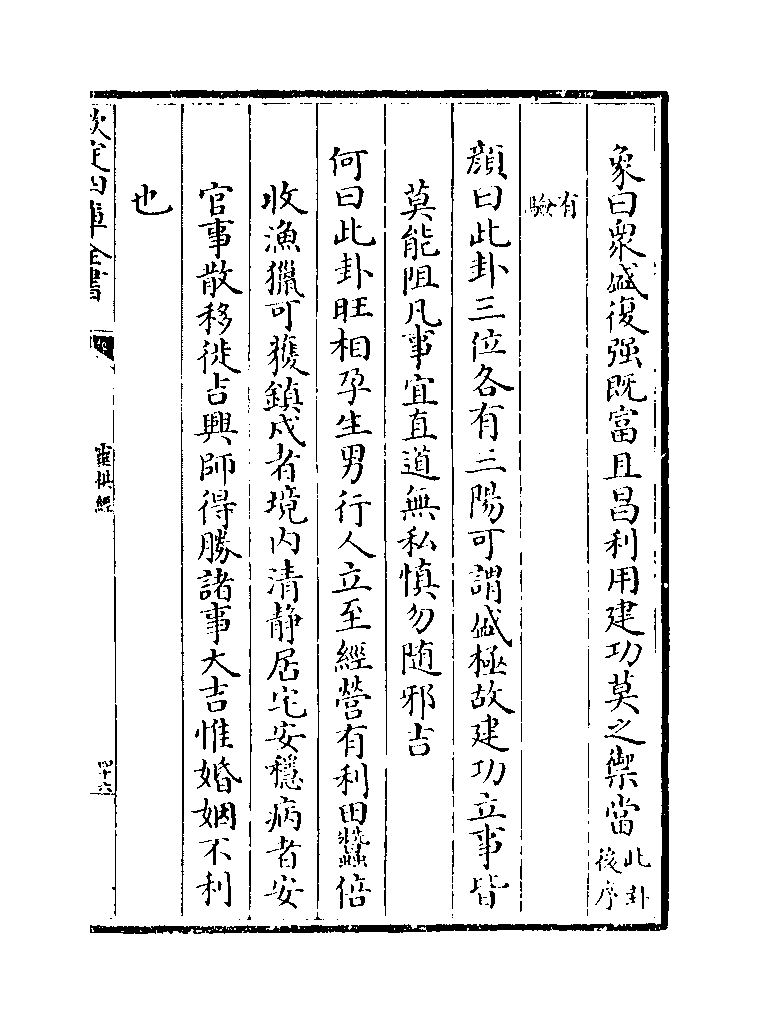 象曰衆盛復强既富且昌利用建功莫之禦當此卦後序
有驗
顔曰此卦三位各有三陽可謂盛極故建功立事皆
莫能阻凡事宜直道無私慎勿随邪吉
何曰此卦旺相孕生男行人立至經營有利田蠶倍
收漁獵可獲鎮戍者境内清静居宅安穩病者安
官事散移徙吉興師得勝諸事大吉惟婚姻不利
也
欽定四庫全書
靈棋經
四十六